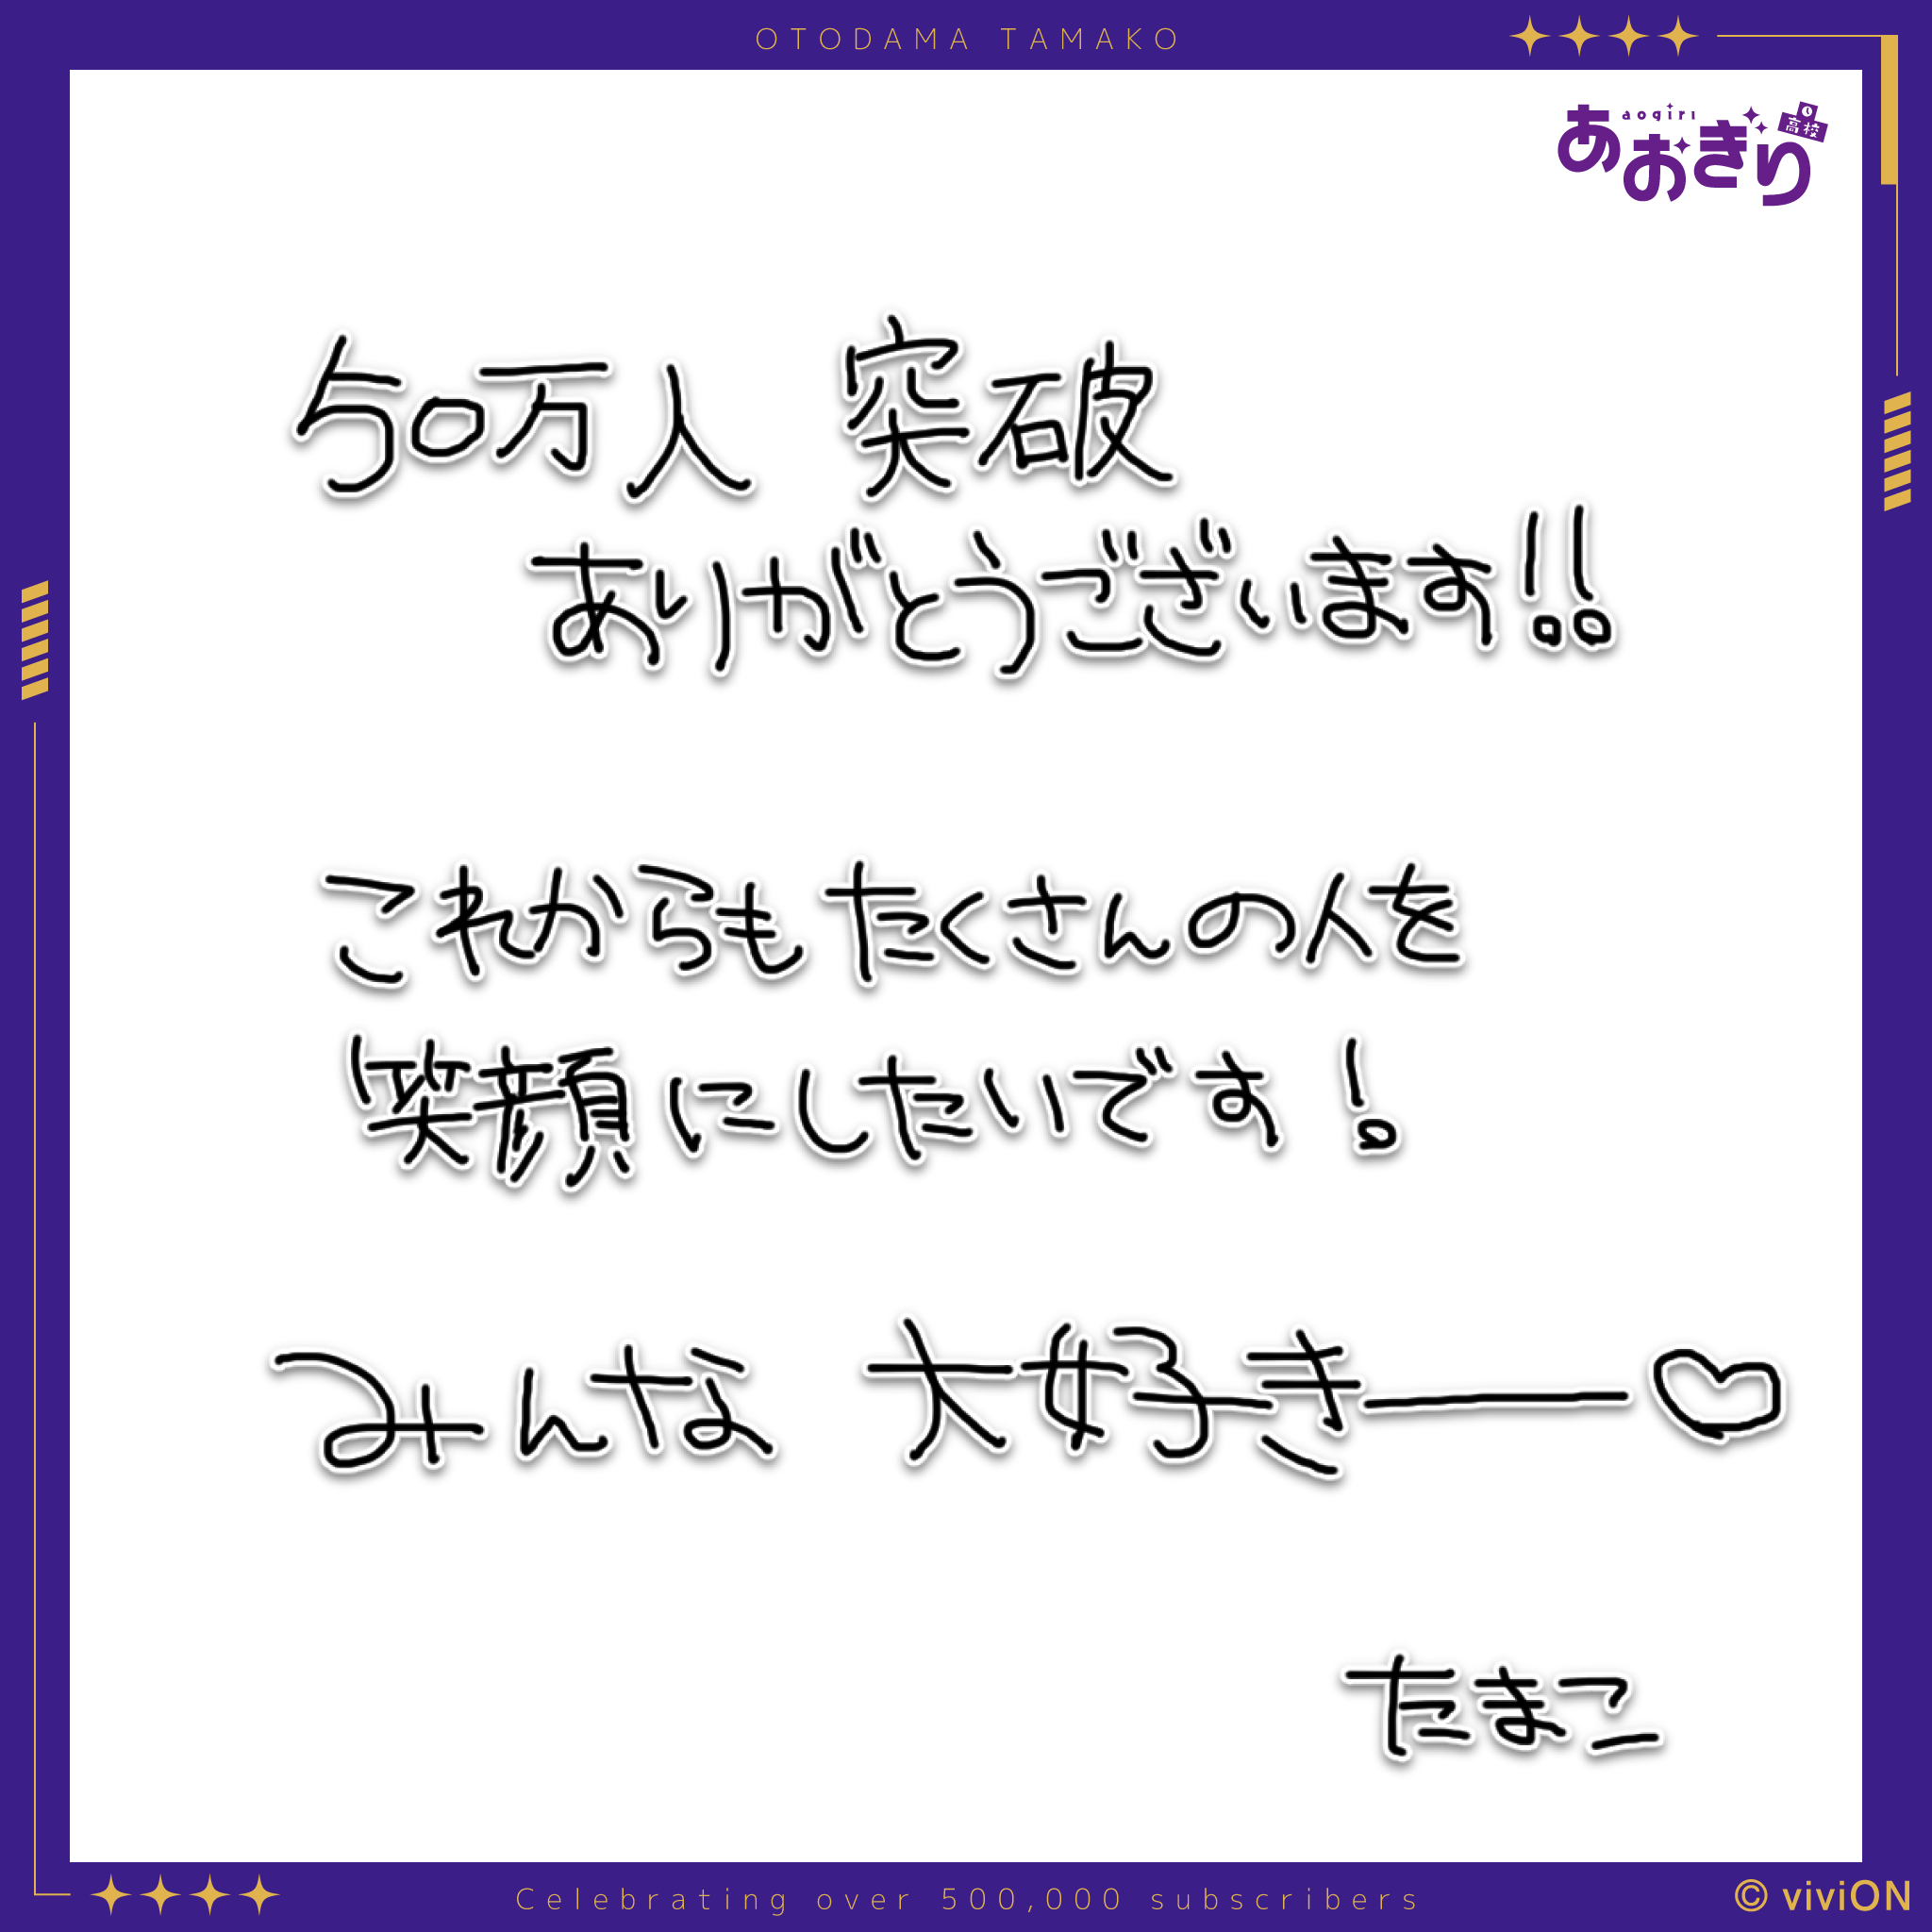 OTODAMA TAMAKO
aogiri
あおぎり
高校
50万人 突破
ありがとうございます!!
これからもたくさんの人を
笑顔にしたいです!
みんな 大好きー♡
たまこ
Celebrating over 500,000 subscribers
© viviON